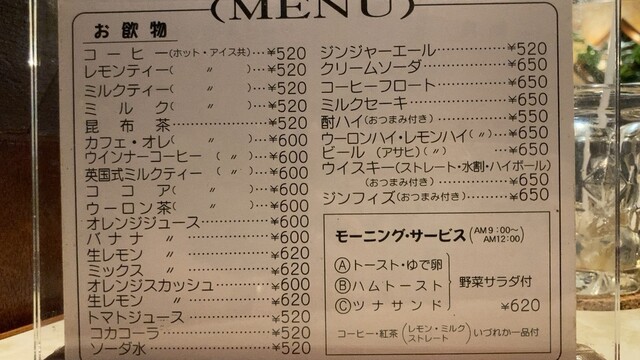 (MENU)
お飲物
コーヒー(ホット・アイス共)…¥520
レモンティー(　〃　)…¥520
ミルクティー(　〃　)…¥520
ミルク(　〃　)…¥520
昆布茶………¥520
カフェ・オレ(　〃　)…¥600
ウインナーコーヒー(〃)…¥600
英国式ミルクティー(〃)…¥600
ココア(〃)…¥600
ウーロン茶(　〃　)…¥600
オレンジジュース………¥600
バナナ　〃　………¥600
生レモン　〃　………¥620
ミックス　〃　………¥620
オレンジスカッシュ………¥600
生レモン　〃　………¥620
トマトジュース………¥520
コカコーラ………¥520
ソーダ水………¥520
ジンジャーエール………¥520
クリームソーダ………¥650
コーヒーフロート………¥650
ミルクセーキ………¥650
酎ハイ(おつまみ付き)………¥550
ウーロンハイ・レモンハイ(〃)…¥650
ビール(アサヒ)(〃)………¥650
ウイスキー(ストレート・水割・ハイボール)
(おつまみ付き)………¥650
ジンフィズ(おつまみ付き)………¥650
モーニング・サービス(AM9:00〜AM12:00)
Ⓐトースト・ゆで卵
Ⓑハムトースト
Ⓒツナサンド
野菜サラダ付
¥620
コーヒー・紅茶(レモン・ミルク ストレート)いづれか一品付